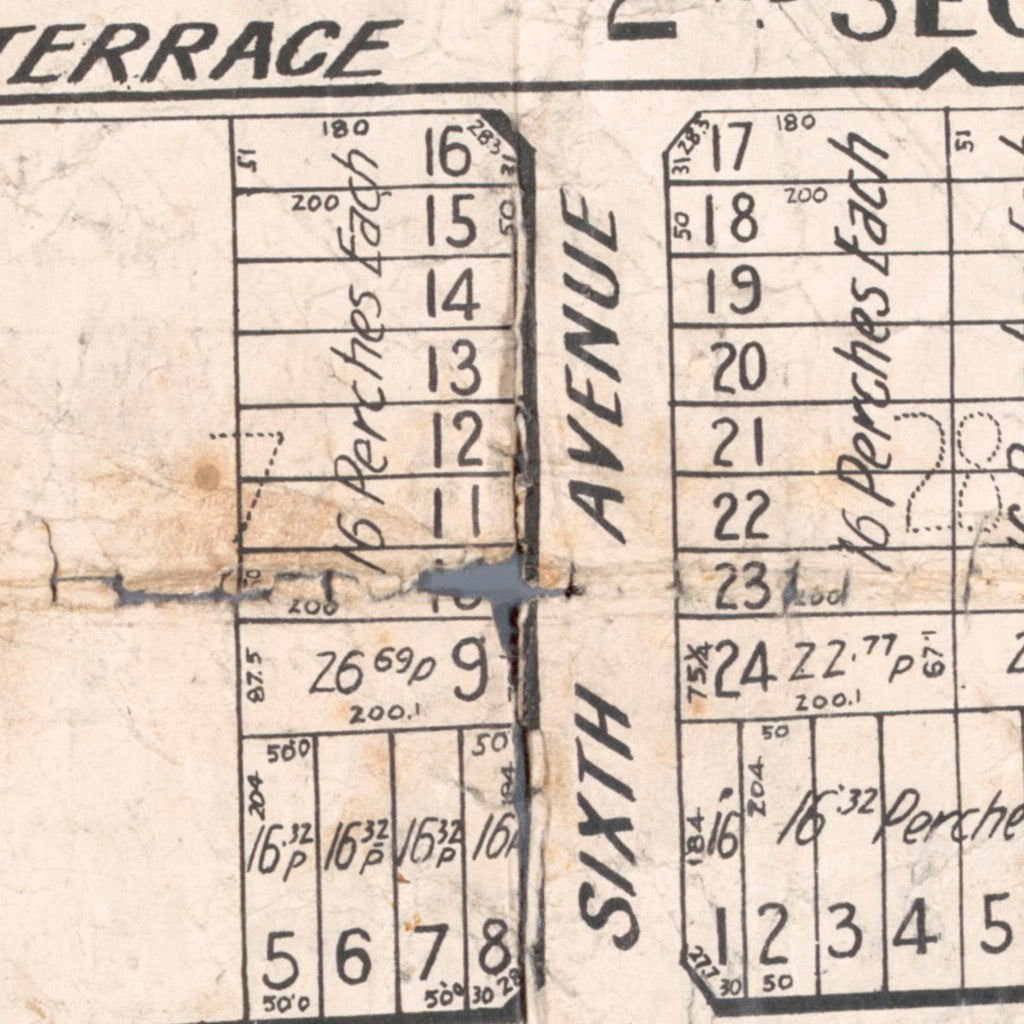 TERRACE
2ND SEC
180
16
28.3
31
51
200
15
50
14
13
12
11
16 Perches Each
7
200
10
87.5
26 69p
9
200.1
50'0
50
204
184
16.32 p
16 32 p
16 32 p
16
5
6
7
8
50'0
30
28
SIXTH AVENUE
31
28.3
17
180
51
50
18
200
19
20
21
22
23
200
16 Perches Each
28
75
24
22.77p
67.1
200.1
50
184
204
16
16.32 Perche
1
2
3
4
5
27.7
30
50